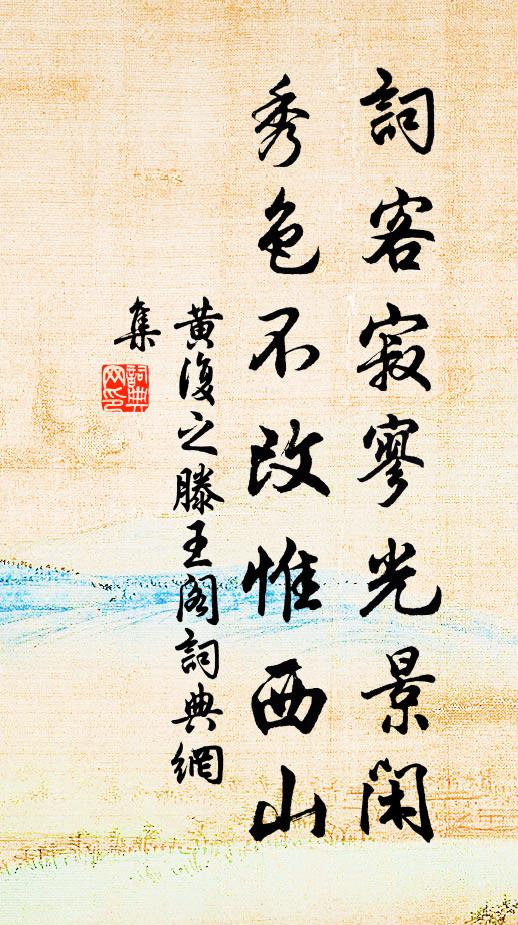 詞客寂寥光景閑
秀色不改惟西山
黃復之滕王閣詞典網
集
詞典网印